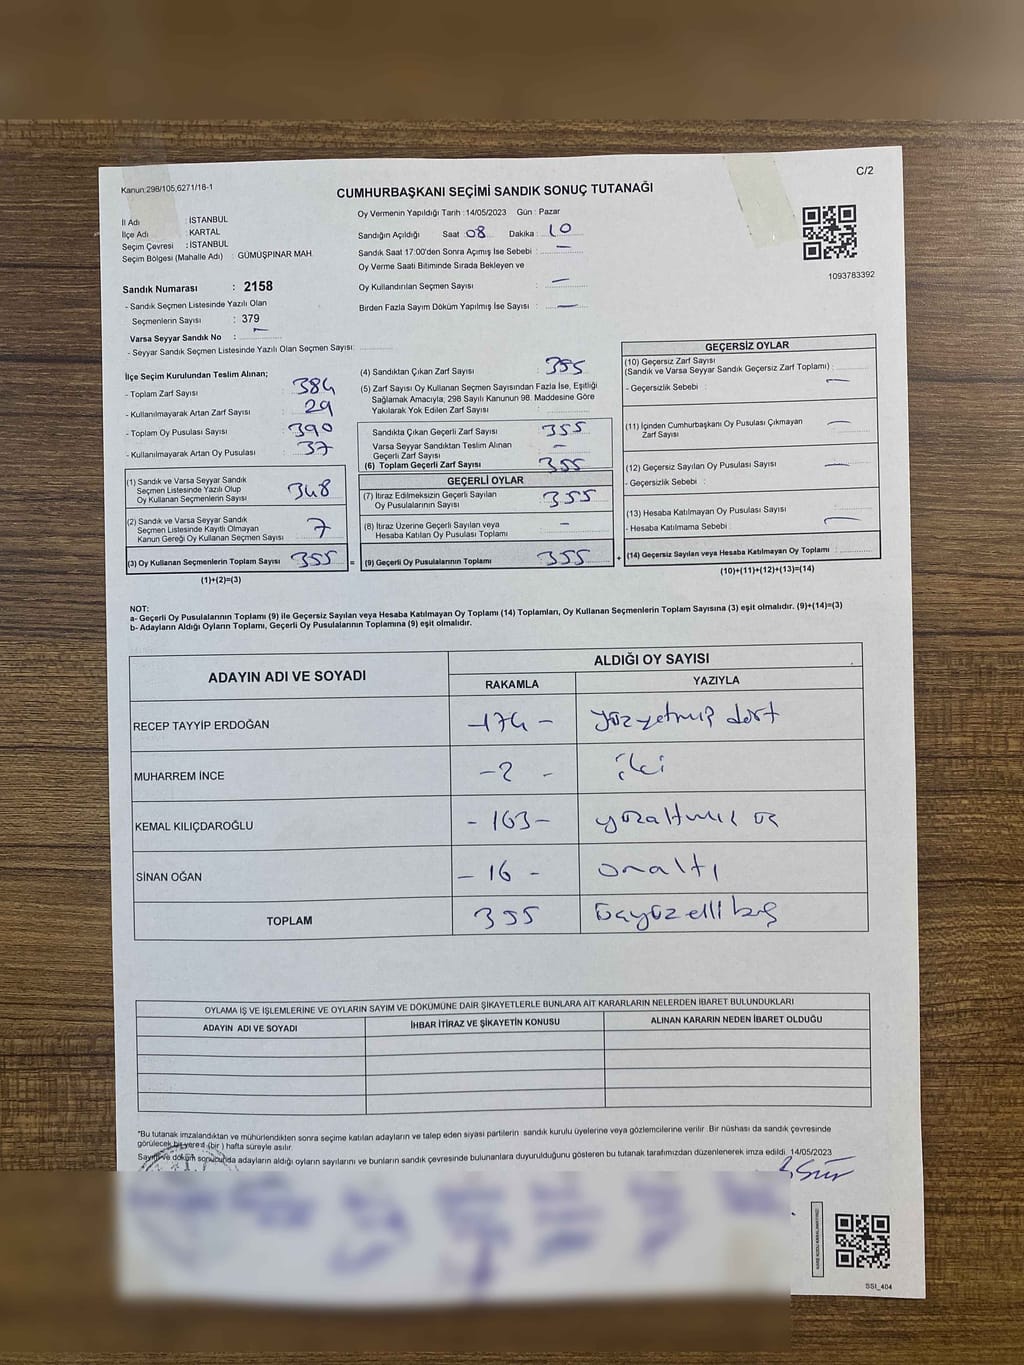 C/2
Kanun:298/105,6271/18-1
CUMHURBAŞKANI SEÇİMİ SANDIK SONUÇ TUTANAĞI
İl Adı : İSTANBUL
İlçe Adı : KARTAL
Seçim Çevresi : İSTANBUL
Seçim Bölgesi (Mahalle Adı) : GÜMÜŞPINAR MAH
Sandık Numarası : 2158
- Sandık Seçmen Listesinde Yazılı Olan
Seçmenlerin Sayısı : 379
Varsa Seyyar Sandık No : —
- Seyyar Sandık Seçmen Listesinde Yazılı Olan Seçmen Sayısı:
Oy Vermenin Yapıldığı Tarih : 14/05/2023 Gün : Pazar
Sandığın Açıldığı Saat : 08 Dakika : 10
Sandık Saat 17:00'den Sonra Açımış İse Sebebi : —
Oy Verme Saati Bitiminde Sırada Bekleyen ve
Oy Kullandırılan Seçmen Sayısı : —
Birden Fazla Sayım Döküm Yapılmış İse Sayısı : —
1093783392
İlçe Seçim Kurulundan Teslim Alınan;
- Toplam Zarf Sayısı : 384
- Kullanılmayarak Artan Zarf Sayısı : 29
- Toplam Oy Pusulası Sayısı : 390
- Kullanılmayarak Artan Oy Pusulası : 37
(1) Sandık ve Varsa Seyyar Sandık
Seçmen Listesinde Yazılı Olup
Oy Kullanan Seçmenlerin Sayısı 348
(2) Sandık ve Varsa Seyyar Sandık
Seçmen Listesinde Kayıtlı Olmayan
Kanun Gereği Oy Kullanan Seçmen Sayısı 7
(3) Oy Kullanan Seçmenlerin Toplam Sayısı 355
(1)+(2)=(3)
(4) Sandıktan Çıkan Zarf Sayısı : 355
(5) Zarf Sayısı Oy Kullanan Seçmen Sayısından Fazla İse, Eşitliği
Sağlamak Amacıyla, 298 Sayılı Kanunun 98. Maddesine Göre
Yakılarak Yok Edilen Zarf Sayısı :
Sandıkta Çıkan Geçerli Zarf Sayısı : 355
Varsa Seyyar Sandıktan Teslim Alınan
Geçerli Zarf Sayısı : —
(6) Toplam Geçerli Zarf Sayısı : 355
GEÇERLİ OYLAR
(7) İtiraz Edilmeksizin Geçerli Sayılan
Oy Pusulalarının Sayısı : 355
(8) İtiraz Üzerine Geçerli Sayılan veya
Hesaba Katılan Oy Pusulası Toplamı : —
= (9) Geçerli Oy Pusulalarının Toplamı : 355
GEÇERSİZ OYLAR
(10) Geçersiz Zarf Sayısı
(Sandık ve Varsa Seyyar Sandık Geçersiz Zarf Toplamı) :
- Geçersizlik Sebebi : —
(11) İçinden Cumhurbaşkanı Oy Pusulası Çıkmayan
Zarf Sayısı : —
(12) Geçersiz Sayılan Oy Pusulası Sayısı : —
- Geçersizlik Sebebi :
(13) Hesaba Katılmayan Oy Pusulası Sayısı :
- Hesaba Katılmama Sebebi : —
+ (14) Geçersiz Sayılan veya Hesaba Katılmayan Oy Toplamı :
(10)+(11)+(12)+(13)=(14)
NOT:
a- Geçerli Oy Pusulalarının Toplamı (9) ile Geçersiz Sayılan veya Hesaba Katılmayan Oy Toplamı (14) Toplamları, Oy Kullanan Seçmenlerin Toplam Sayısına (3) eşit olmalıdır. (9)+(14)=(3)
b- Adayların Aldığı Oyların Toplamı, Geçerli Oy Pusulalarının Toplamına (9) eşit olmalıdır.
ADAYIN ADI VE SOYADI ALDIĞI OY SAYISI
RAKAMLA YAZIYLA
RECEP TAYYİP ERDOĞAN -174- yüzyetmiş dört
MUHARREM İNCE -2- iki
KEMAL KILIÇDAROĞLU -163- yüzaltmış üç
SİNAN OĞAN -16- onaltı
TOPLAM 355 üçyüz elli beş
OYLAMA İŞ VE İŞLEMLERİNE VE OYLARIN SAYIM VE DÖKÜMÜNE DAİR ŞİKAYETLERLE BUNLARA AİT KARARLARIN NELERDEN İBARET BULUNDUKLARI
ADAYIN ADI VE SOYADI İHBAR İTİRAZ VE ŞİKAYETİN KONUSU ALINAN KARARIN NEDEN İBARET OLDUĞU
*Bu tutanak imzalandıktan ve mühürlendikten sonra seçime katılan adayların ve talep eden siyasi partilerin sandık kurulu üyelerine veya gözlemcilerine verilir. Bir nüshası da sandık çevresinde
görülecek bir yere 1 (bir ) hafta süreyle asılır.
Sayım ve döküm sonucunda adayların aldığı oyların sayılarını ve bunların sandık çevresinde bulunanlara duyurulduğunu gösteren bu tutanak tarafımızdan düzenlenerek imza edildi. 14/05/2023
SSI_404